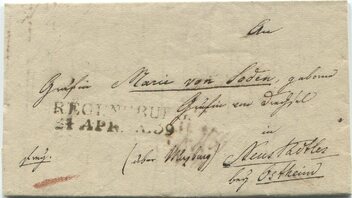 An
Gräfin Marie von Soden, geborne
Gräfin von
REGENSTAUF
21 APR. 1839
in
frey. (über) Neustädtles
bey Ostheim